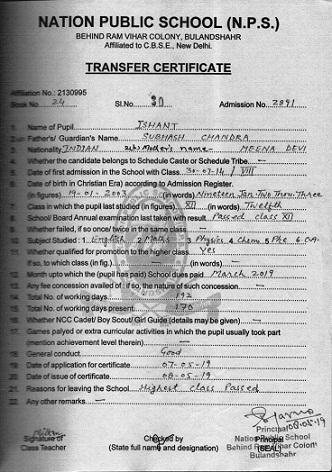 NATION PUBLIC SCHOOL (N.P.S.)
BEHIND RAM VIHAR COLONY, BULANDSHAHR
Affiliated to C.B.S.E., New Delhi.
TRANSFER CERTIFICATE
Affiliation No.: 2130995
Book No. 24 Sl.No. 30 Admission No. 2891
1. Name of Pupil ISHANT
2. Father's/ Guardian's Name SUBHASH CHANDRA
3. Nationality INDIAN Mother's name- MEENA DEVI
4. Whether the candidate belongs to Schedule Caste or Schedule Tribe. —
5. Date of first admission in the School with Class 30-07-14 / VIII
6. Date of birth in Christian Era) according to Admission Register.
(in figures) 19-01-2003 (in words) Nineteen Jan. Two Thou. Three
7. Class in which the pupil last studied (in figures) XII (in words) Twelfth
8. School/ Board Annual examination last taken with result Passed class XII
9. Whether failed, if so once/ twice in the same class —
10. Subject Studied : 1 English 2 Maths 3 Physics 4 Chem 5 Phe 6
11. Whether qualified for promotion to the higher class yes
If so, to which class (in fig.) — (in words) —
12. Month upto which the (pupil has paid) School dues paid March 2019
13. Any fee concession availed of : if so, the nature of such concession —
14. Total No. of working days 192
15. Total No. of working days present 170
16. Whether NCC Cadet/ Boy Scout/ Girl Guide (details may be given) —
17. Games palyed or extra curricular activities in which the pupil usually took part
(mention achievement level therein) —
18. General conduct Good
19. Date of application for certificate 07-05-19
20. Date of issue of certificate 08-05-19
21. Reasons for leaving the School Highest Class Passed
22. Any other remarks —
Principal 08-05-19
Signature of Checked by Nation Public School
Class Teacher (State full name & designation) Behind Ram Vihar Colony
Principal
(SEAL)
Bulandshahr